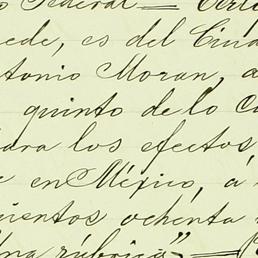 Federal =
ede, es del Ciu
ntonio Moran, a
quinto de lo C
para los efectos
en México, á
cientos ochenta
Una rúbrica" =